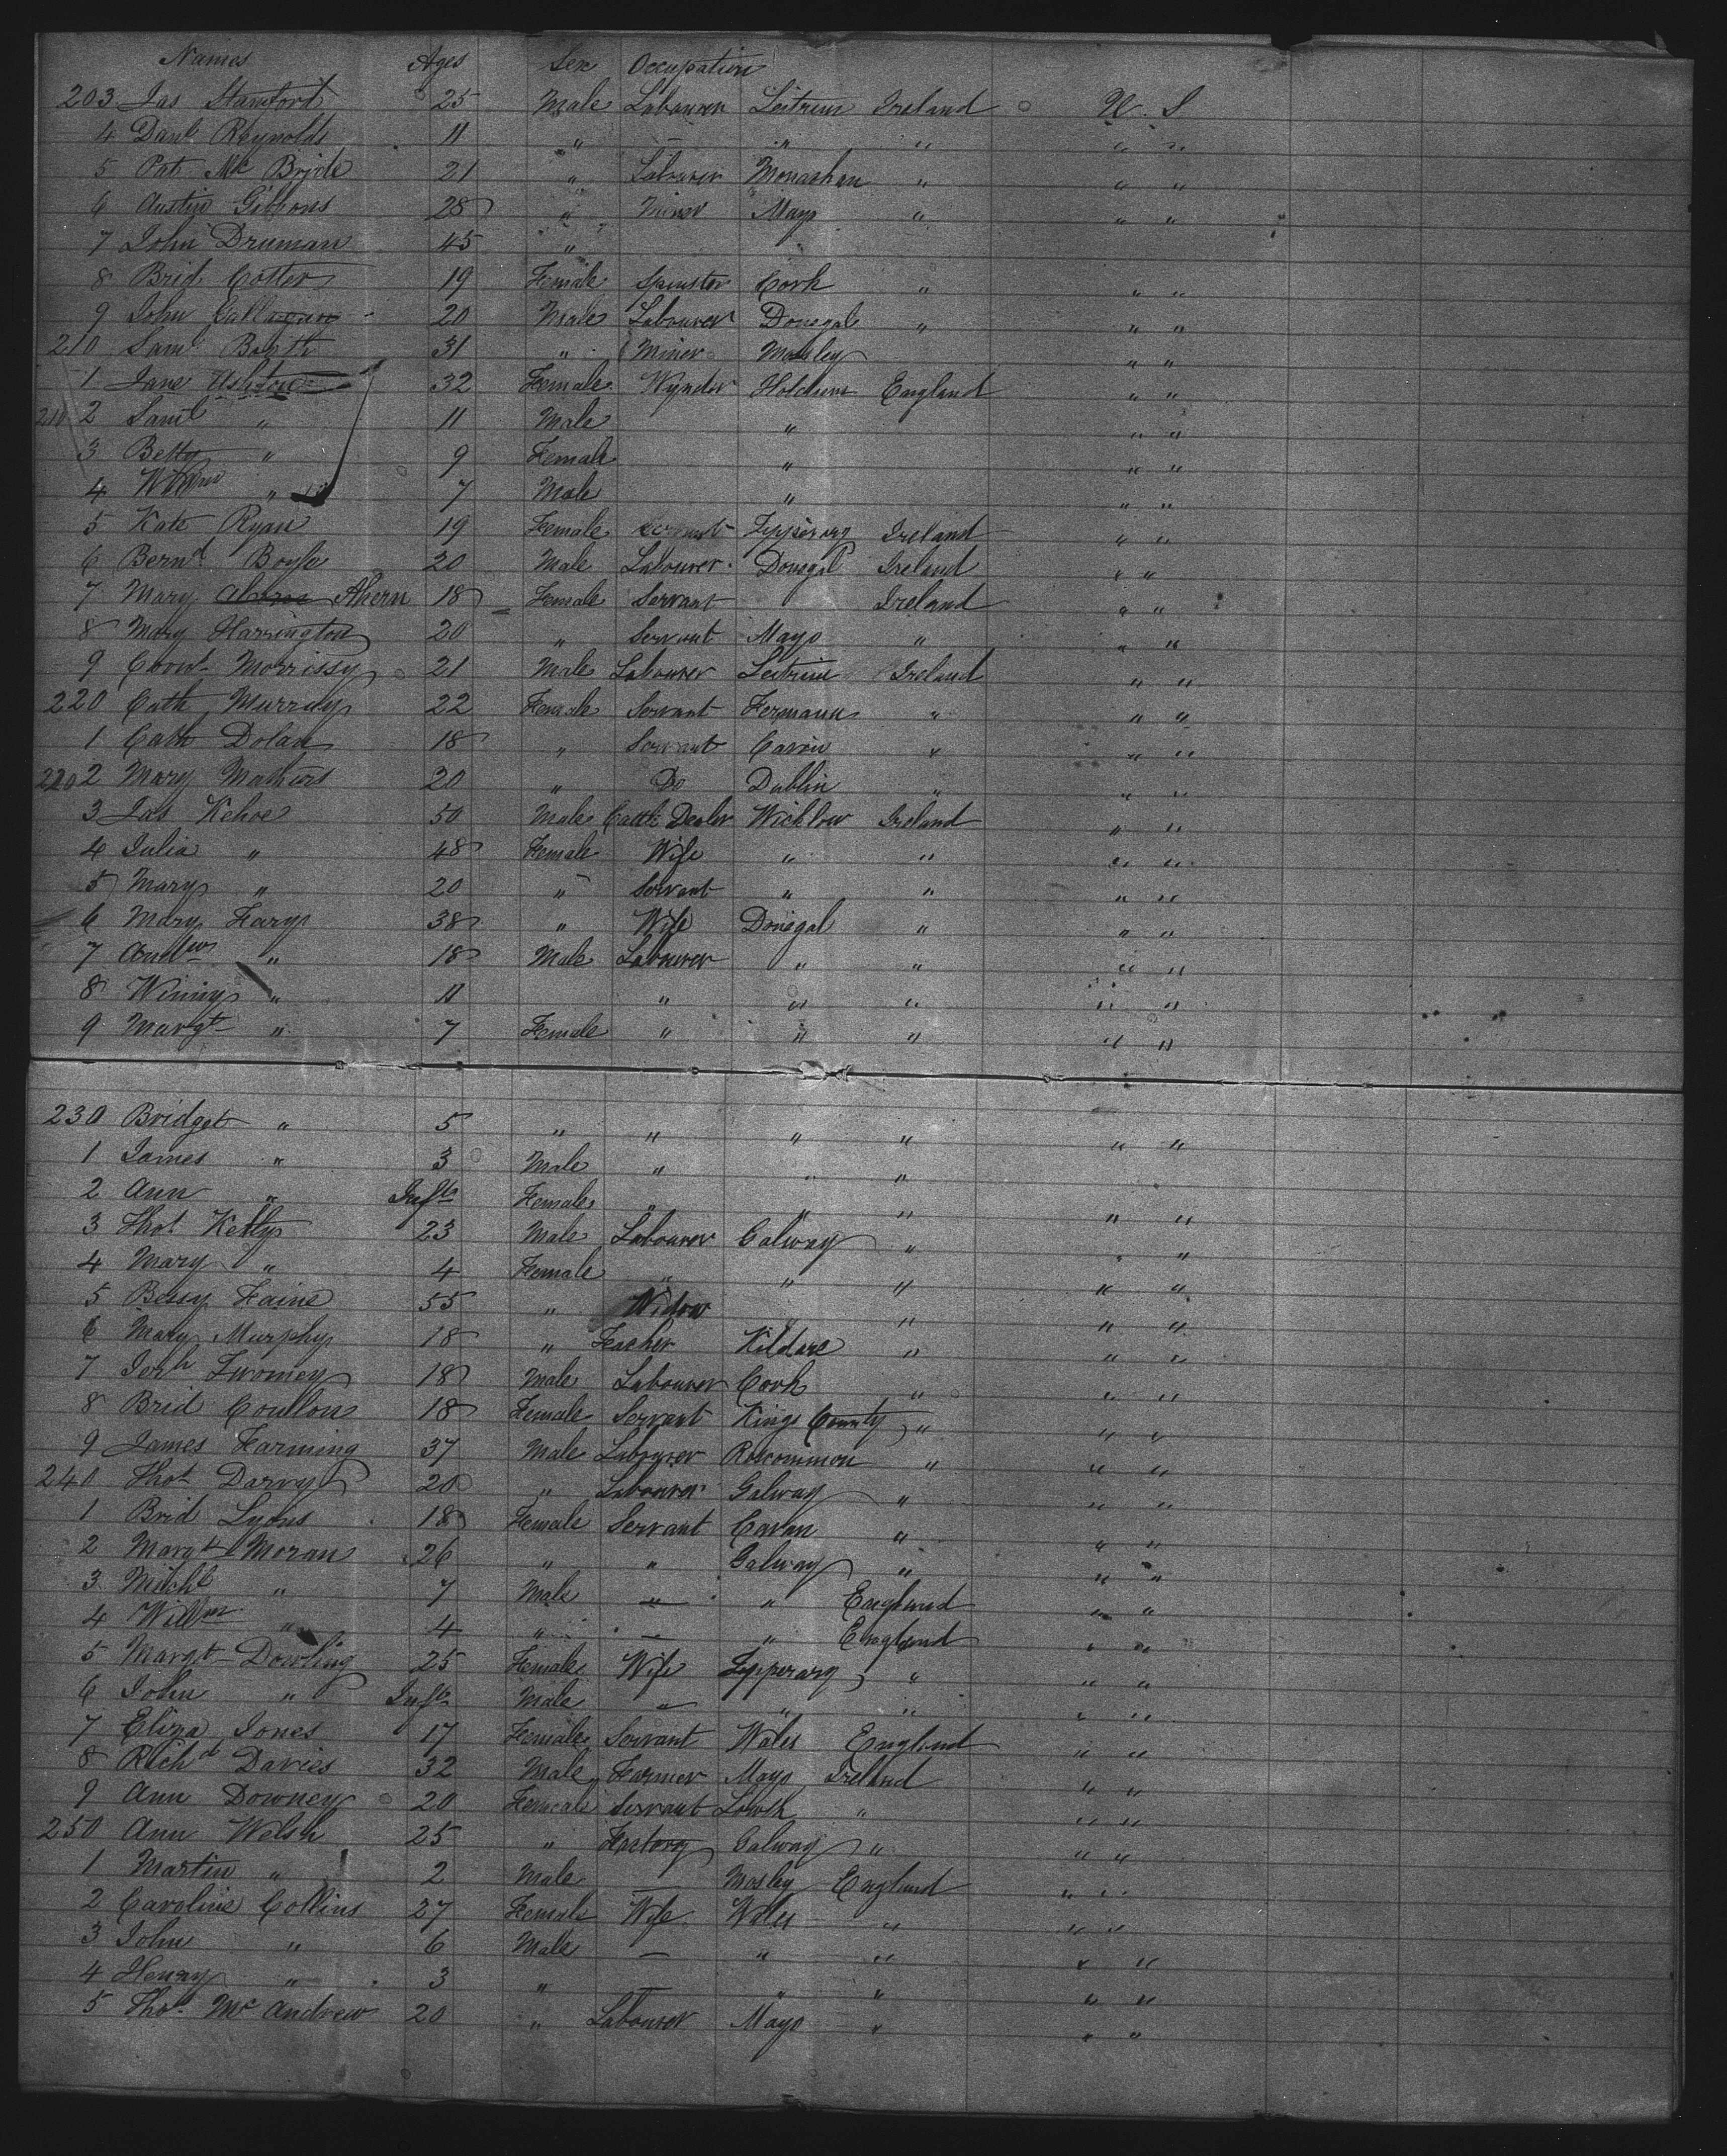 Names Ages Sex Occupation
203 Jas Stamford 25 Male Labourer Leitrim Ireland U. S
4 Danl Reynolds 11 " — " " " "
5 Pat Mc Bride 21 " Labourer Monaghan " " "
6 Austin Gibbons 28 " Miner Mayo " " "
7 John Druman 45 "
8 Brid Cotter 19 Female Spinster Cork " " "
9 John Callaguin 20 Male Labourer Donegal " " "
210 Saml Booth 31 " Miner Mossley " "
1 Jane Ashton 32 Female England " "
210 2 Saml " 11 Male " " "
3 Betty " 9 Female " " "
4 Willm " 7 Male " " "
5 Kate Ryan 19 Female Servant Tipperary Ireland " "
6 Bernd Boyle 20 Male Labourer Donegal Ireland " "
7 Mary Ahern 18 Female Servant Ireland " "
8 Mary Harrington 20 " Servant Mayo " " "
9 Morrissy 21 Male Labourer Leitrim Ireland " "
220 Cath Murray 22 Female Servant Fermann " " "
1 Cath Dolan 18 " Servant Cavan " " "
220 2 Mary Mathers 20 " Do Dublin " " "
3 Jas Kehoe 50 Male Cattle Dealer Wicklow Ireland " "
4 Julia " 48 Female Wife " " " "
5 Mary " 20 " Servant " " " "
6 Mary Fary 38 " Wife Donegal " " "
7 Andw " 18 Male Labourer " " " "
8 Winny " 11 " " " " "
9 Margt " 7 Female " " " " "
230 Bridget " 5 " " " " " "
1 James " 3 Male " " "
2 Ann " Inft Female " " " " "
3 Thos Kelly 23 Male Labourer Galway " " "
4 Mary " 4 Female " " " " "
5 Bessy Faine 55 " Widow " " "
6 Mary Murphy 18 " Teacher Kildare " " "
7 Jerh Twomey 18 Male Labourer Cork " " "
8 Brid Conlon 18 Female Servant Kings County " " "
9 James Farming 37 Male Labourer Roscommon " " "
240 Thos Darvy 20 " Labourer Galway " " "
1 Brid Lyons 18 Female Servant Cavan " " "
2 Margt Moran 26 " " Galway " " "
3 Michl " 7 Male — " England " "
4 Willm " 4 " — " England " "
5 Margt Dowling 25 Female Wife Tipperary " " "
6 John " Inft Male — " " " "
7 Eliza Jones 17 Female Servant Wales England " "
8 Richd Davies 32 Male Farmer Mayo Ireland " "
9 Ann Downey 20 Female Servant Louth " " "
250 Ann Welsh 25 " Factory Galway " " "
1 Martin " 2 Male — Mosley England " "
2 Caroline Collins 27 Female Wife Wales " " "
3 John " 6 Male — " " " "
4 Henry " 3 " — " " " "
5 Thos Mc Andrew 20 " Labourer Mayo " " "